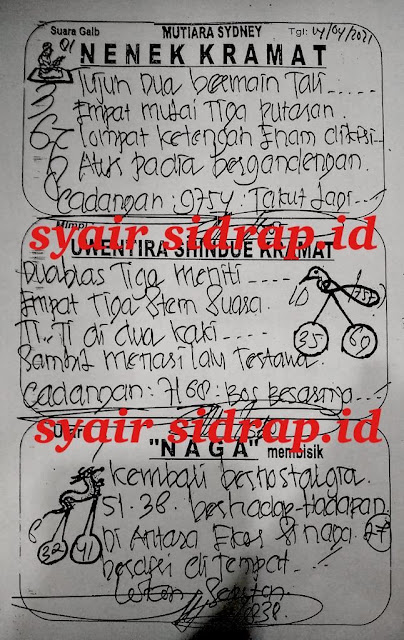 Suara Gaib MUTIARA SYDNEY Tgl: 04/04/2021
01
NENEK KRAMAT
Tujuh Dua bermain Tali.....
5 Empat mulai Tiga putaran
67 Lompat ketengah Enam dikisi...
6 Atur padia bergandengan.
Cadangan: 9754: Takut Lagi...
syair sidrap.id
Mimpi
UWENTIRA SHINDUE KRAMAT
Duablas Tiga meniti.....
Empat Tiga Stem Suasa
Ti..Ti di dua kaki.....
Sambil menari lalu Tertawa.
Cadangan: 7168: Bos Besarnya...
10
35 60
syair sidrap.id
"NAGA" membisik
Kembali bernostalgia.
51.38. berhadap-hadapan
Di Antara Ekor Si naga. 27
berapi ditempat.....
8
32 41